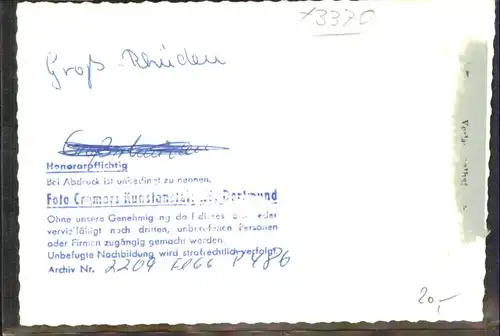 x3370
Groß-Rhüden
Honorarpflichtig
Bei Abdruck ist unbedingt zu nennen.
Foto Cramers Kunstanstalt Dortmund
Ohne unsere Genehmigung darf dieses weder
vervielfältigt noch dritten, unberufenen Personen
oder Firmen zugängig gemacht werden.
Unbefugte Nachbildung wird strafrechtlich verfolgt
Archiv Nr. 2209
20,-